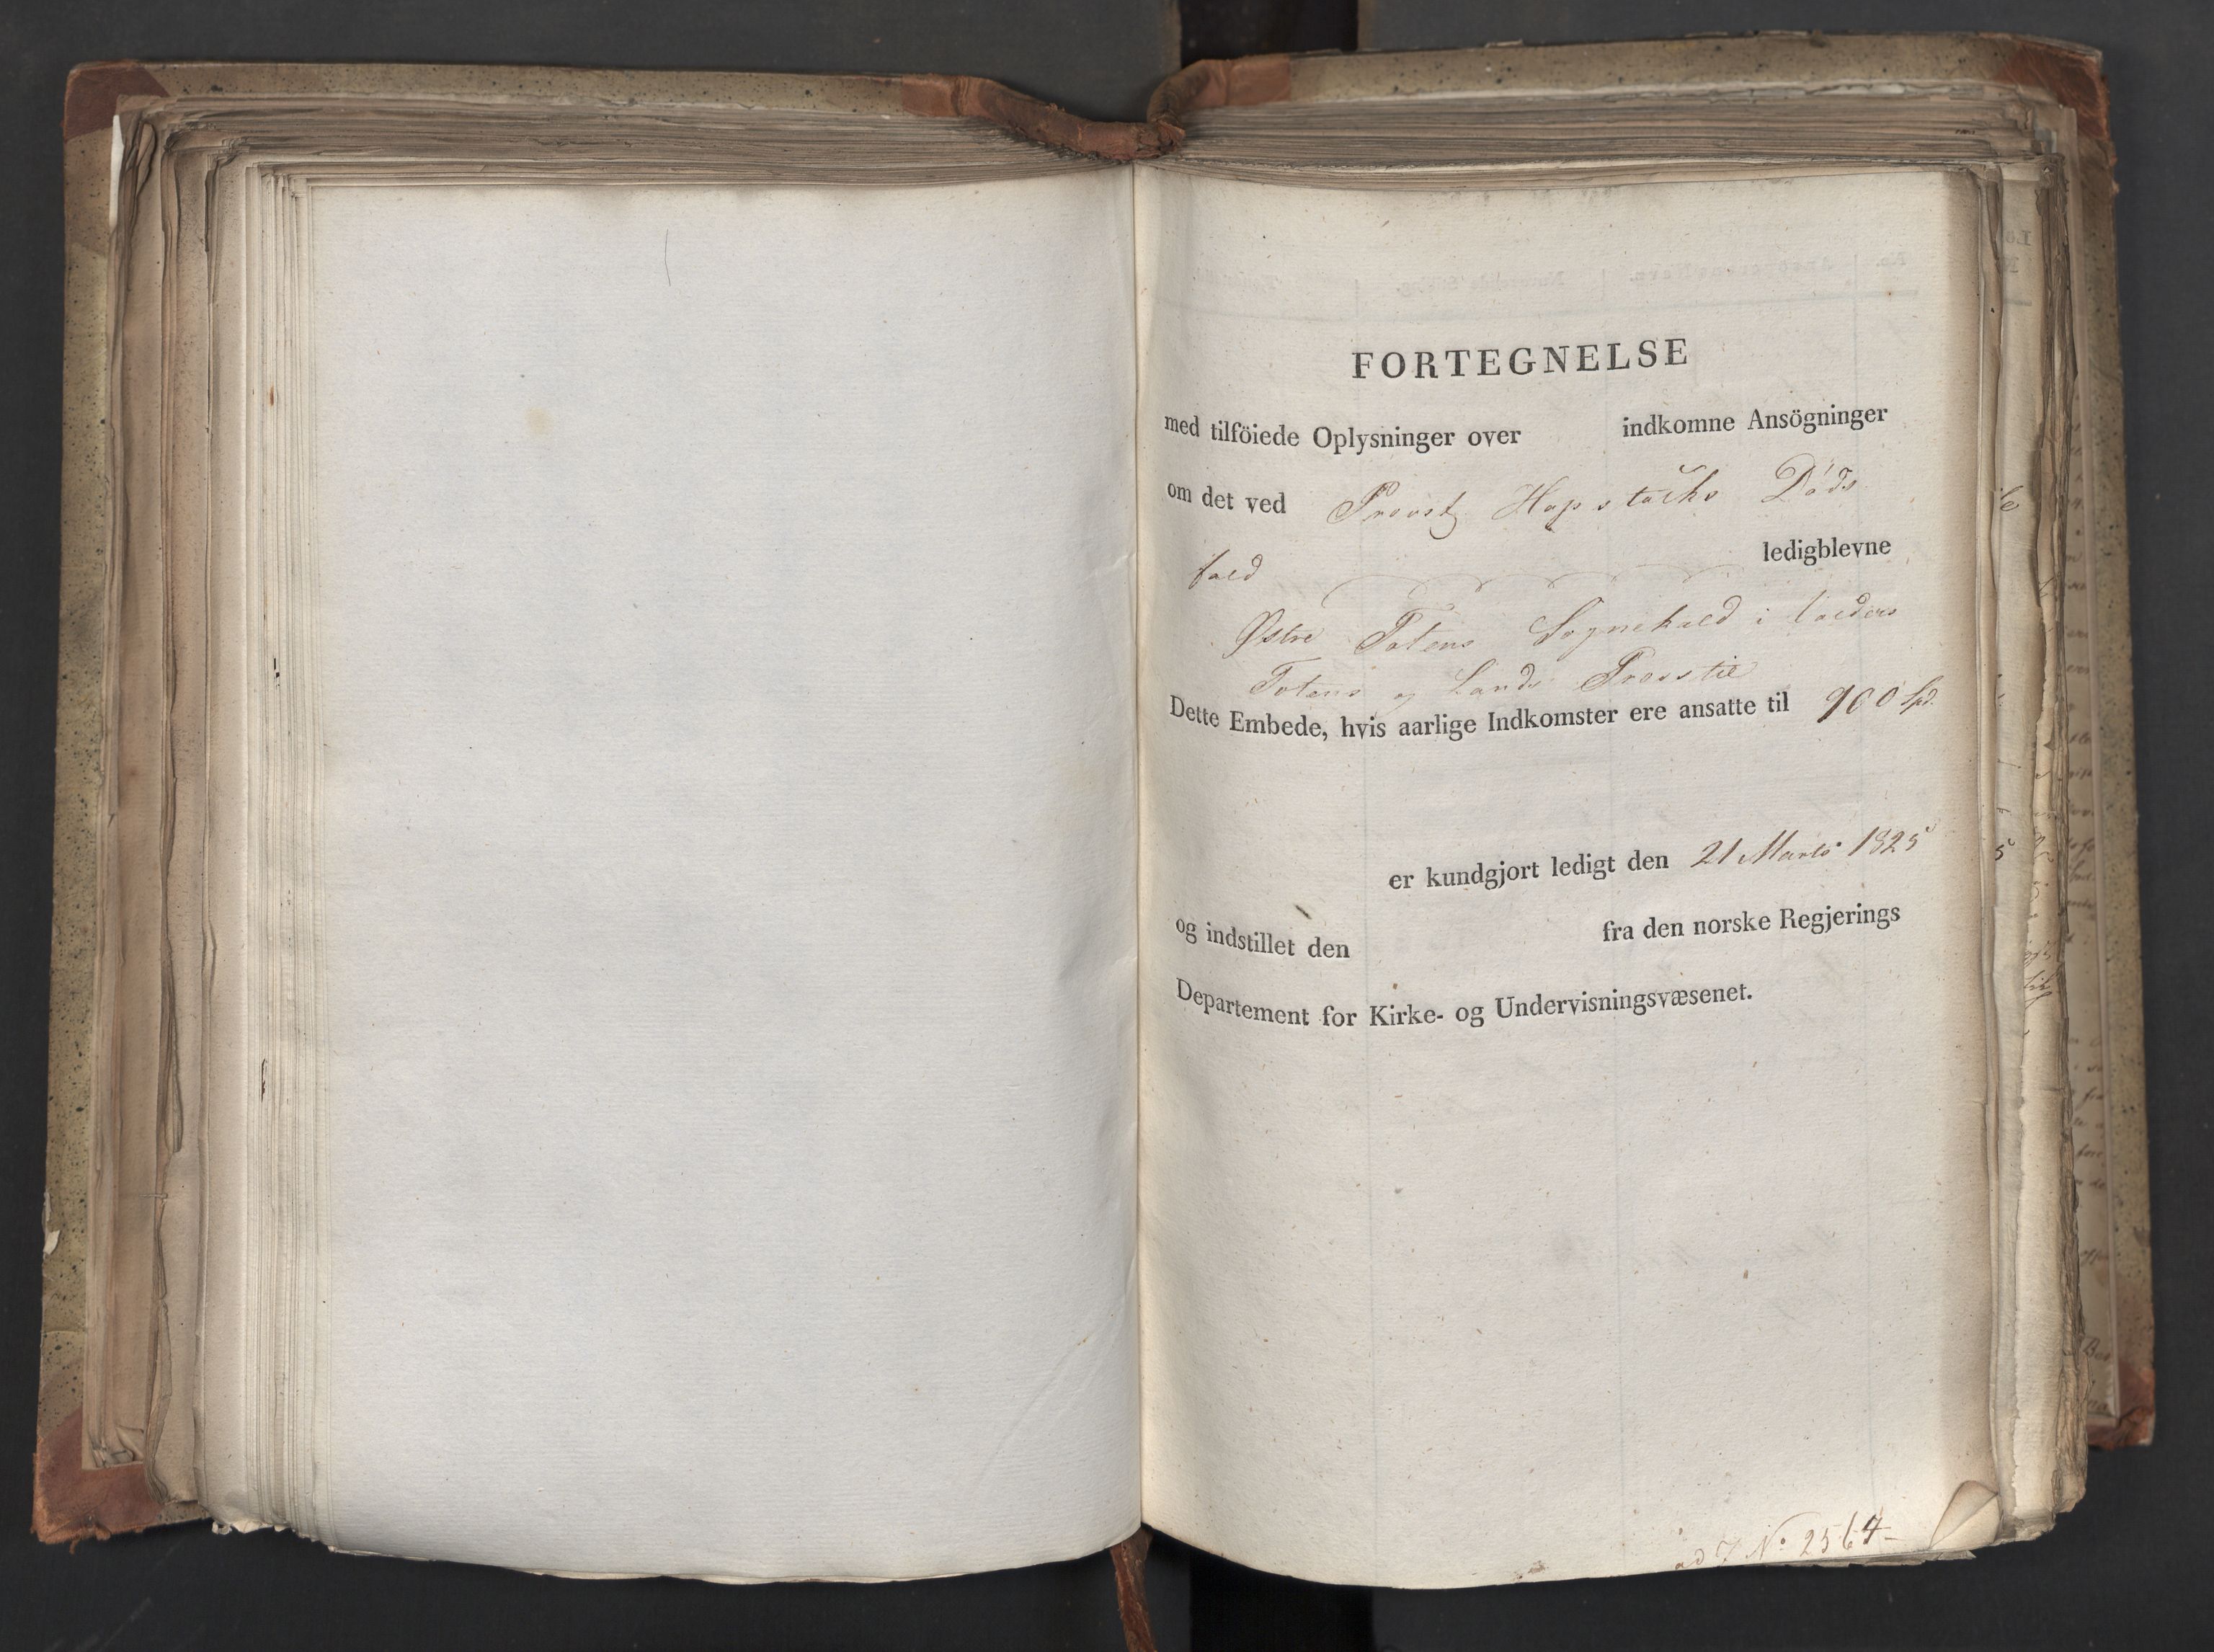 FORTEGNELSE
med tilföiede Oplysninger over indkomne Ansögninger
om det ved Provst Hapstachs Döds
fald ledigblevne
Østre Totens Sognekald i Valders
Totens og Lands Provstie
Dette Embede, hvis aarlige Indkomster ere ansatte til 900 Spd.
er kundgjort ledigt den 21 Marts 1825
og indstillet den fra den norske Regjerings
Departement for Kirke- og Undervisningsvæsenet.
ad J No 2564